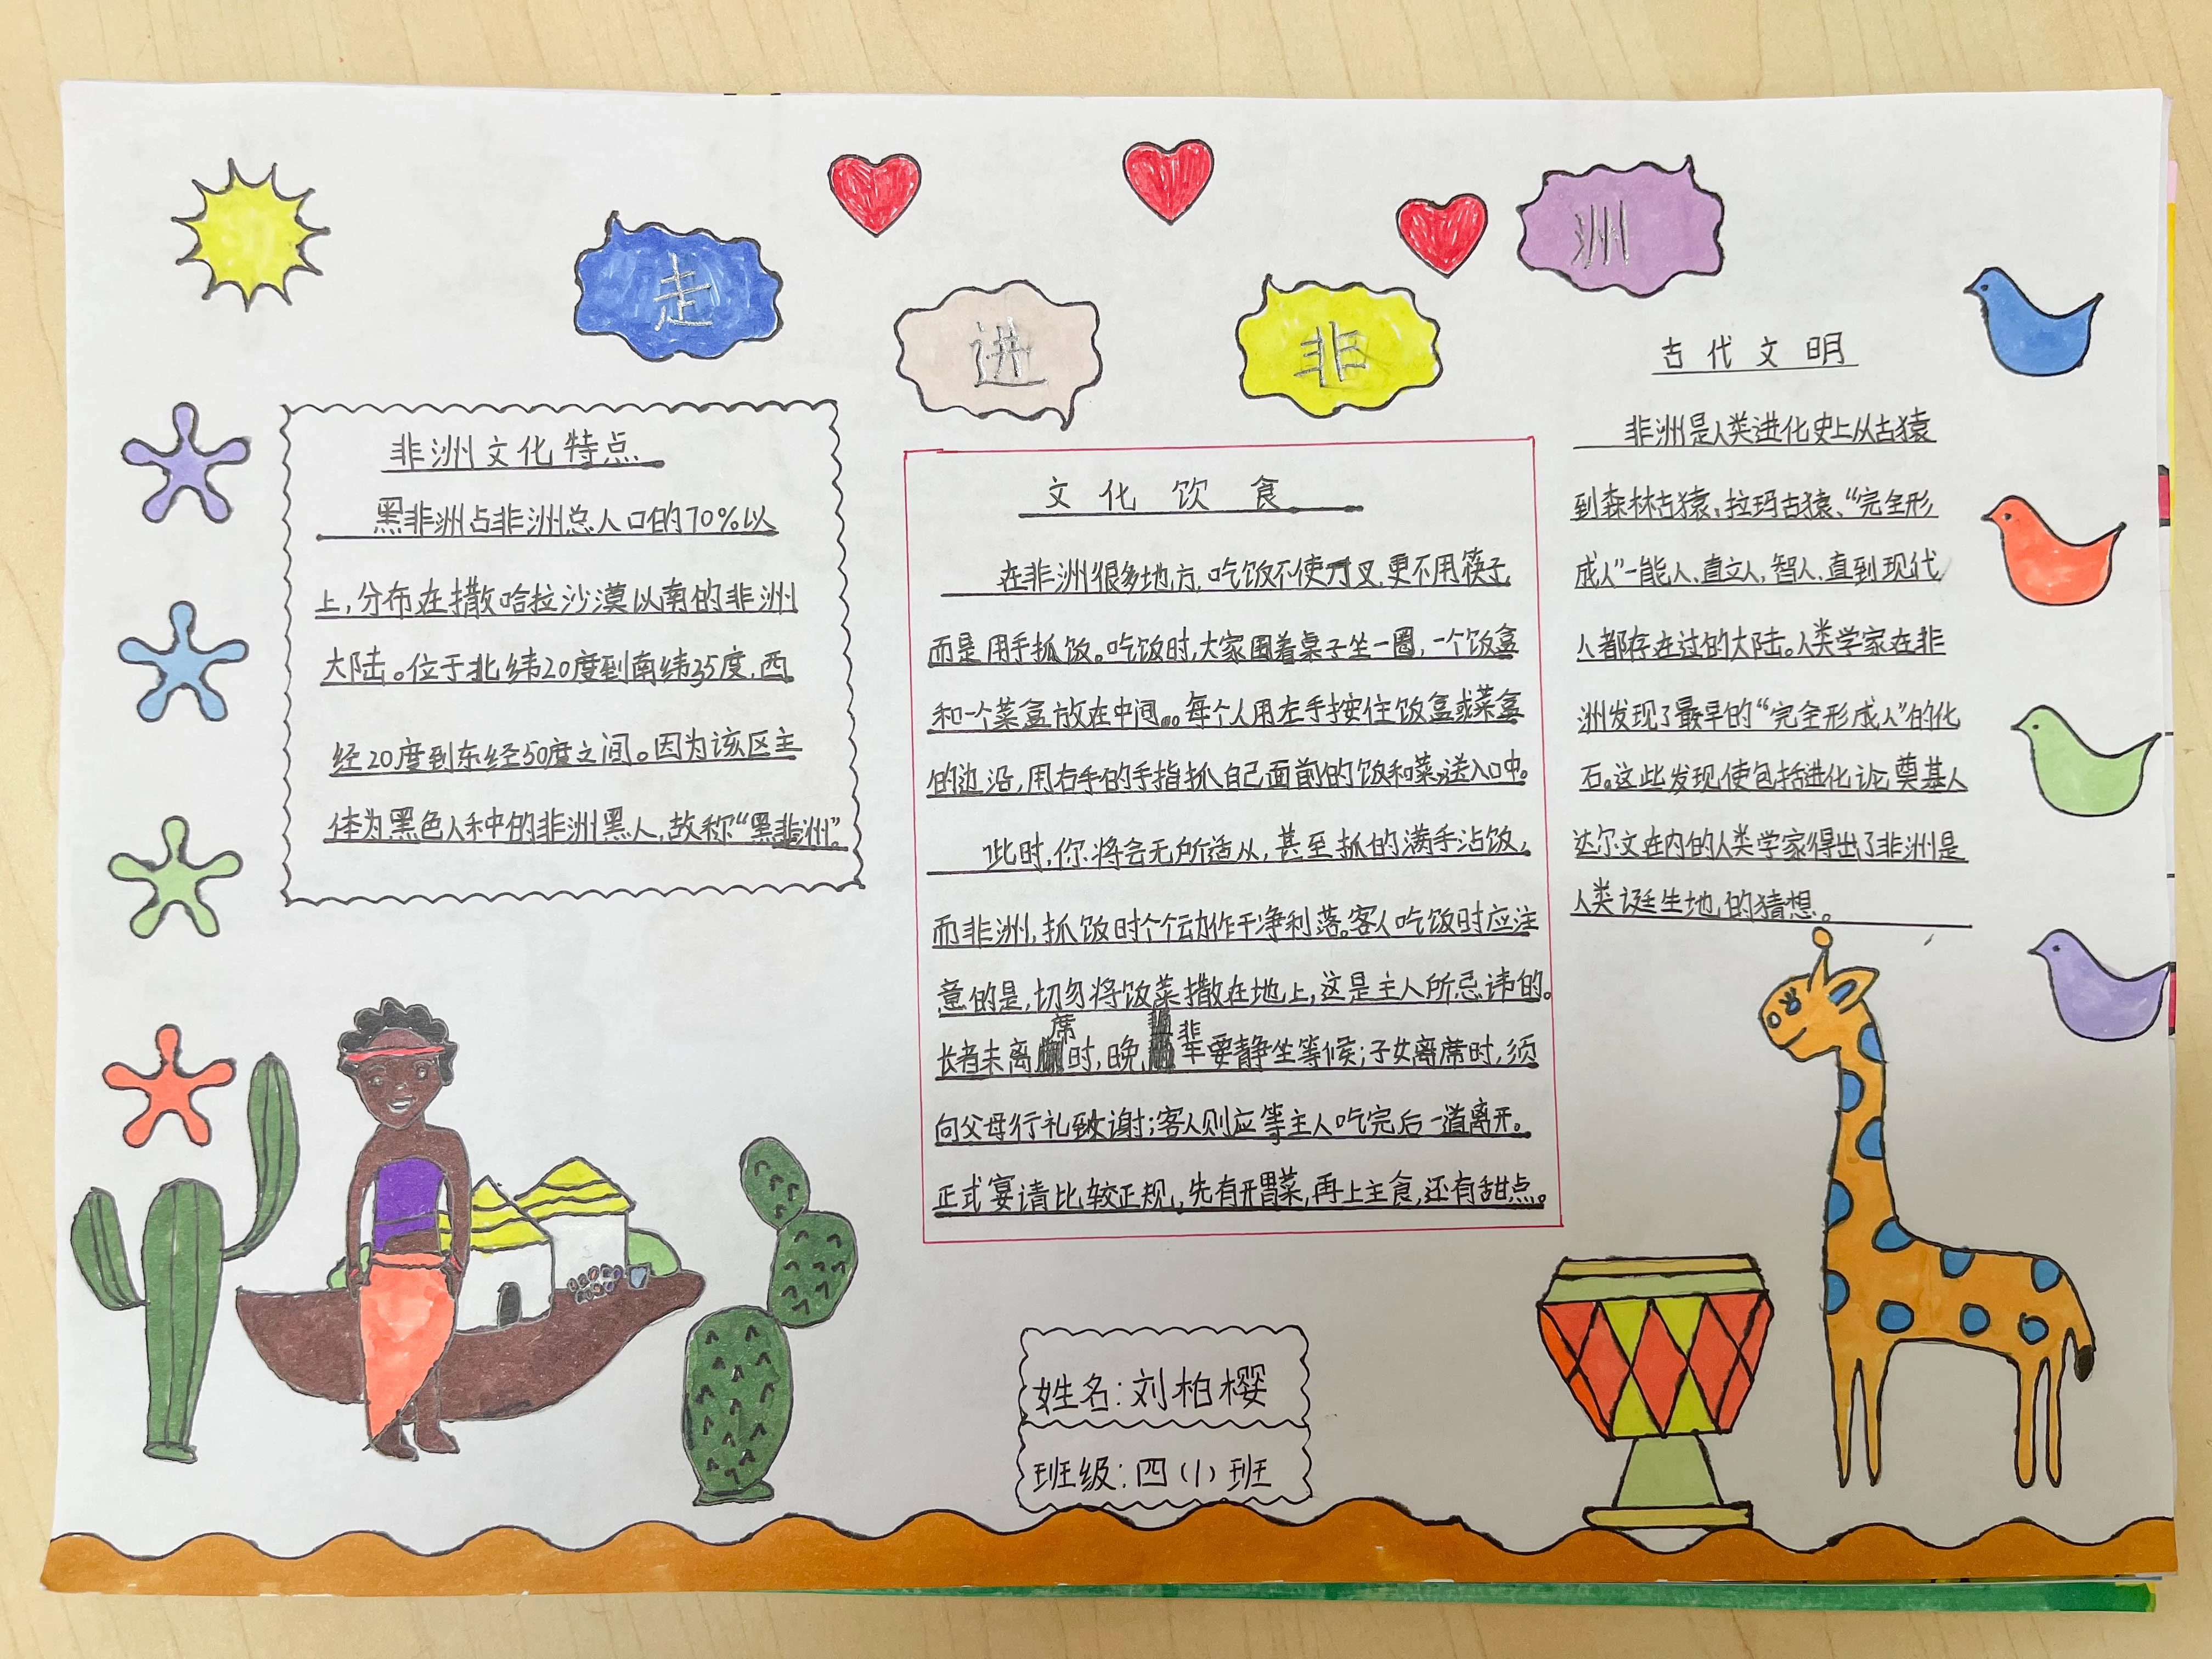 走进非洲
非洲文化特点
黑非洲占非洲总人口的70%以
上,分布在撒哈拉沙漠以南的非洲
大陆。位于北纬20度到南纬35度,西
经20度到东经50度之间。因为该区主
体为黑色人种中的非洲黑人,故称“黑非洲”。
文化饮食
在非洲很多地方,吃饭不使刀叉,更不用筷子,
而是用手抓饭。吃饭时,大家围着桌子坐一圈,一个饭盒
和一个菜盒放在中间。每个人用左手按住饭盒或菜盒
的边沿,用右手的手指抓自己面前的饭和菜,送入口中。
此时,你将会无所适从,甚至抓的满手沾饭,
而非洲,抓饭时个个动作干净利落。客人吃饭时应注
意的是,切勿将饭菜撒在地上,这是主人所忌讳的。
长者未离席时,晚辈要静坐等候;子女离席时,须
向父母行礼致谢;客人则应等主人吃完后一道离开。
正式宴请比较正规,先有开胃菜,再上主食,还有甜点。
古代文明
非洲是人类进化史上从古猿
到森林古猿、拉玛古猿、“完全形
成人”-能人、直立人,智人、直到现代
人都存在过的大陆。人类学家在非
洲发现了最早的“完全形成人”的化
石。这些发现,使包括进化论,奠基人
达尔文在内的人类学家得出了非洲是
人类诞生地,的猜想。
姓名:刘柏樱
班级:四(1)班